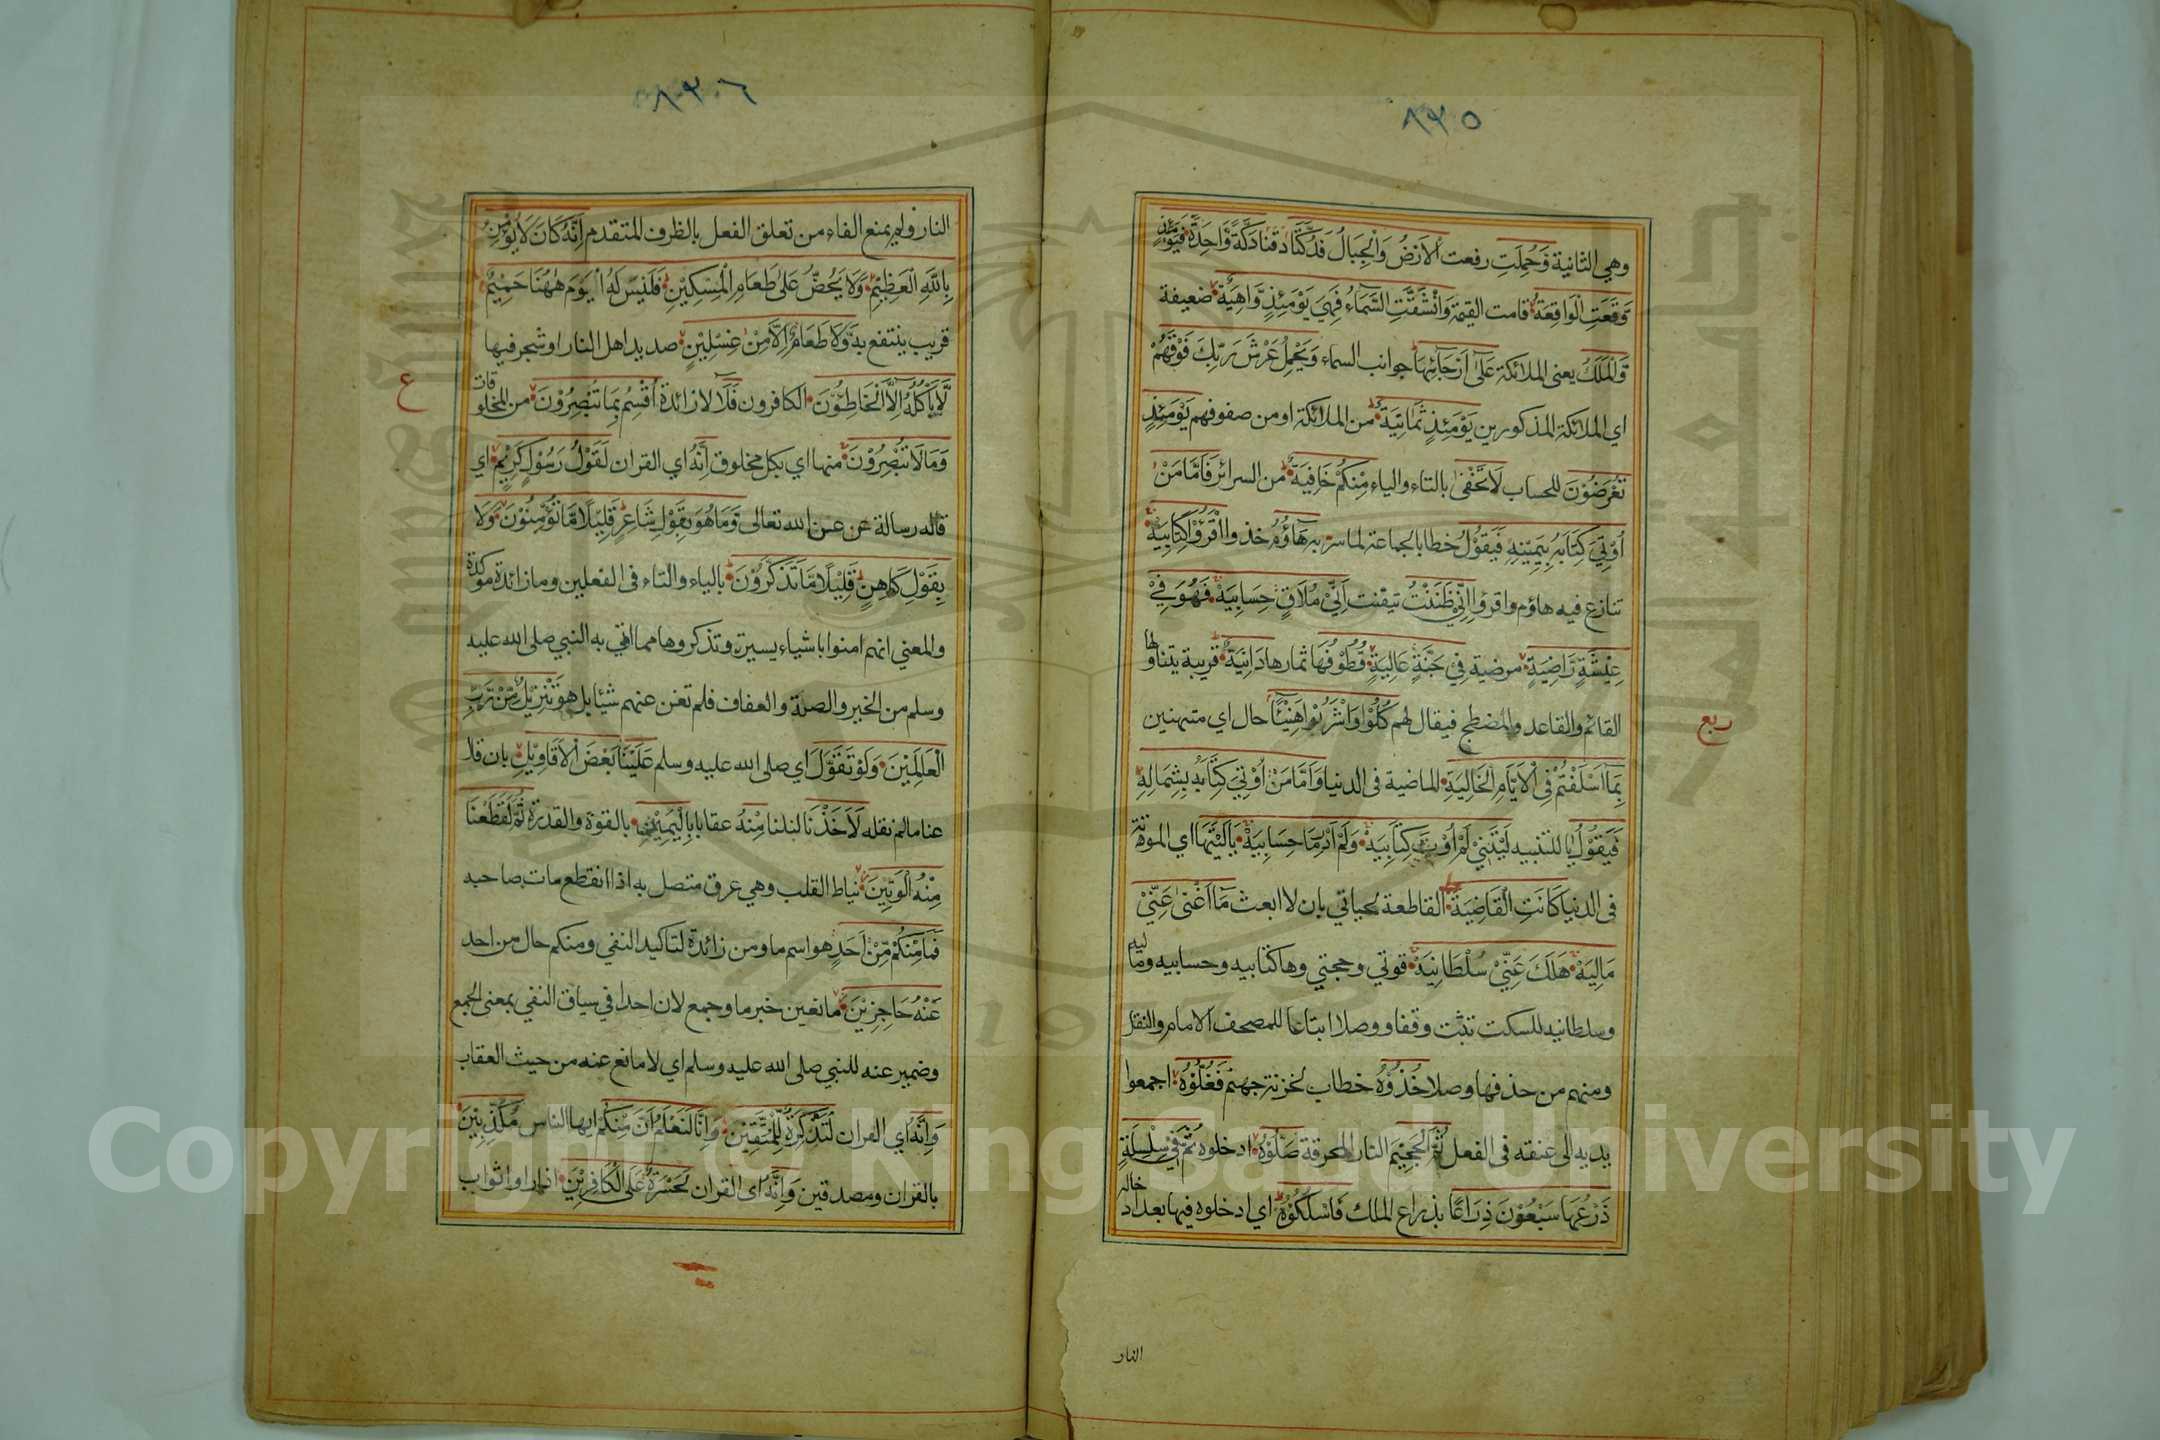 ٨٣٥
وهي الثانية وَحُمِلَتِ رفعت الْأَرْضُ وَالْجِبَالُ فَدُكَّتَا دقتا دَكَّةً وَّاحِدَةً فَيَوْمَئِذٍ
وَّقَعَتِ الْوَاقِعَةُ قامت القيمة وَانْشَقَّتِ السَّمَاءُ فَهِيَ يَوْمَئِذٍ وَّاهِيَةٌ ضعيفة
وَّالْمَلَكُ يعنى الملائكة عَلَىٰ أَرْجَائِهَا جوانب السماء وَيَحْمِلُ عَرْشَ رَبِّكَ فَوْقَهُمْ
اي الملائكة المذكورين يَوْمَئِذٍ ثَمَانِيَةٌ من الملائكة او من صفوفهم يَوْمَئِذٍ
تُعْرَضُوْنَ للحساب لَا تَخْفَىٰ بالتاء والياء مِنْكُمْ خَافِيَةٌ من السرائر فَاَمَّا مَنْ
اُوْتِيَ كِتَابَهُ بِيَمِيْنِهِ فَيَقُوْلُ خطابا لجماعة لما سر به هَاؤُمُ خذوا اقْرَؤُا كِتَابِيَهْ
تنازع فيه هاؤم واقرؤا اِنِّيْ ظَنَنْتُ تيقنت اَنِّيْ مُلَاقٍ حِسَابِيَهْ فَهُوَ فِيْ
عِيْشَةٍ رَّاضِيَةٍ مرضية فِيْ جَنَّةٍ عَالِيَةٍ قُطُوْفُهَا ثمارها دَانِيَةٌ قريبة يتناولها
القائم والقاعد والمضطجع فيقال لهم كُلُوْا وَاشْرَبُوْا هَنِيْئًا حال اي متهنئين
ربع
بِمَا اَسْلَفْتُمْ فِى الْاَيَّامِ الْخَالِيَةِ الماضية فى الدنيا وَاَمَّا مَنْ اُوْتِيَ كِتَابَهُ بِشِمَالِهِ
فَيَقُوْلُ يَا للتنبيه لَيْتَنِيْ لَمْ اُوْتَ كِتَابِيَهْ وَلَمْ اَدْرِ مَا حِسَابِيَهْ يَا لَيْتَهَا اي الموتة
فى الدنيا كَانَتِ الْقَاضِيَةَ القاطعة لحياتي بان لا ابعث مَا اَغْنَىٰ عَنِّيْ
مَالِيَهْ هَلَكَ عَنِّيْ سُلْطَانِيَهْ قوتي وحجتي وها كتابيه وحسابيه وماليه
وسلطانيه للسكت تثبت وقفا ووصلا اتباعا للمصحف الامام والنقل
ومنهم من حذفها وصلا خُذُوْهُ خطاب لخزنة جهنم فَغُلُّوْهُ اجمعوا
يديه الى عنقه فى الغل ثُمَّ الْجَحِيْمَ النار المحرقة صَلُّوْهُ ادخلوه ثُمَّ فِيْ سِلْسِلَةٍ
ذَرْعُهَا سَبْعُوْنَ ذِرَاعًا بذراع الملك فَاسْلُكُوْهُ اي ادخلوه فيها بعد ادخاله
النار
٨٣٦
النار ولم يمنع الفاء من تعلق الفعل بالظرف المتقدم اِنَّهُ كَانَ لَا يُؤْمِنُ
بِاللّٰهِ الْعَظِيْمِ وَلَا يَحُضُّ عَلَىٰ طَعَامِ الْمِسْكِيْنِ فَلَيْسَ لَهُ الْيَوْمَ هٰهُنَا حَمِيْمٌ
قريب ينتفع به وَّلَا طَعَامٌ اِلَّا مِنْ غِسْلِيْنٍ صديد اهل النار او شجر فيها
لَّا يَاْكُلُهُ اِلَّا الْخَاطِئُوْنَ الكافرون فَلَا لا زائدة اُقْسِمُ بِمَا تُبْصِرُوْنَ من المخلوقات
ع
وَمَا لَا تُبْصِرُوْنَ منها اي بكل مخلوق اِنَّهُ اي القران لَقَوْلُ رَسُوْلٍ كَرِيْمٍ اي
قاله رسالة عن الله تعالى وَّمَا هُوَ بِقَوْلِ شَاعِرٍ قَلِيْلًا مَّا تُؤْمِنُوْنَ وَلَا
بِقَوْلِ كَاهِنٍ قَلِيْلًا مَّا تَذَكَّرُوْنَ بالياء والتاء فى الفعلين وما زائدة موكدة
والمعني انهم امنوا باشياء يسيرة وتذكروها مما اتي به النبي صلى الله عليه
وسلم من الخير والصلة والعفاف فلم تغن عنهم شيئا بل هو تَنْزِيْلٌ مِّنْ رَّبِّ
الْعَالَمِيْنَ وَلَوْ تَقَوَّلَ اي صلى الله عليه وسلم عَلَيْنَا بَعْضَ الْاَقَاوِيْلِ بان قال
عنا ما لم نقله لَاَخَذْنَا لنلنا مِنْهُ عقابا بِالْيَمِيْنِ بالقوة والقدرة ثُمَّ لَقَطَعْنَا
مِنْهُ الْوَتِيْنَ نياط القلب وهي عرق متصل به اذا انقطع مات صاحبه
فَمَا مِنْكُمْ مِّنْ اَحَدٍ هو اسم ما ومن زائدة لتاكيد النفي ومنكم حال من احد
عَنْهُ حَاجِزِيْنَ مانعين خبر ما وجمع لان احدا في سياق النفي بمعنى الجمع
وضمير عنه للنبي صلى الله عليه وسلم اي لا مانع عنه من حيث العقاب
وَاِنَّهُ اي القران لَتَذْكِرَةٌ لِّلْمُتَّقِيْنَ وَاِنَّا لَنَعْلَمُ اَنَّ مِنْكُمْ ايها الناس مُكَذِّبِيْنَ
بالقران ومصدقين وَاِنَّهُ اى القران لَحَسْرَةٌ عَلَى الْكَافِرِيْنَ اذا راوا ثواب
Copyright © King Saud University